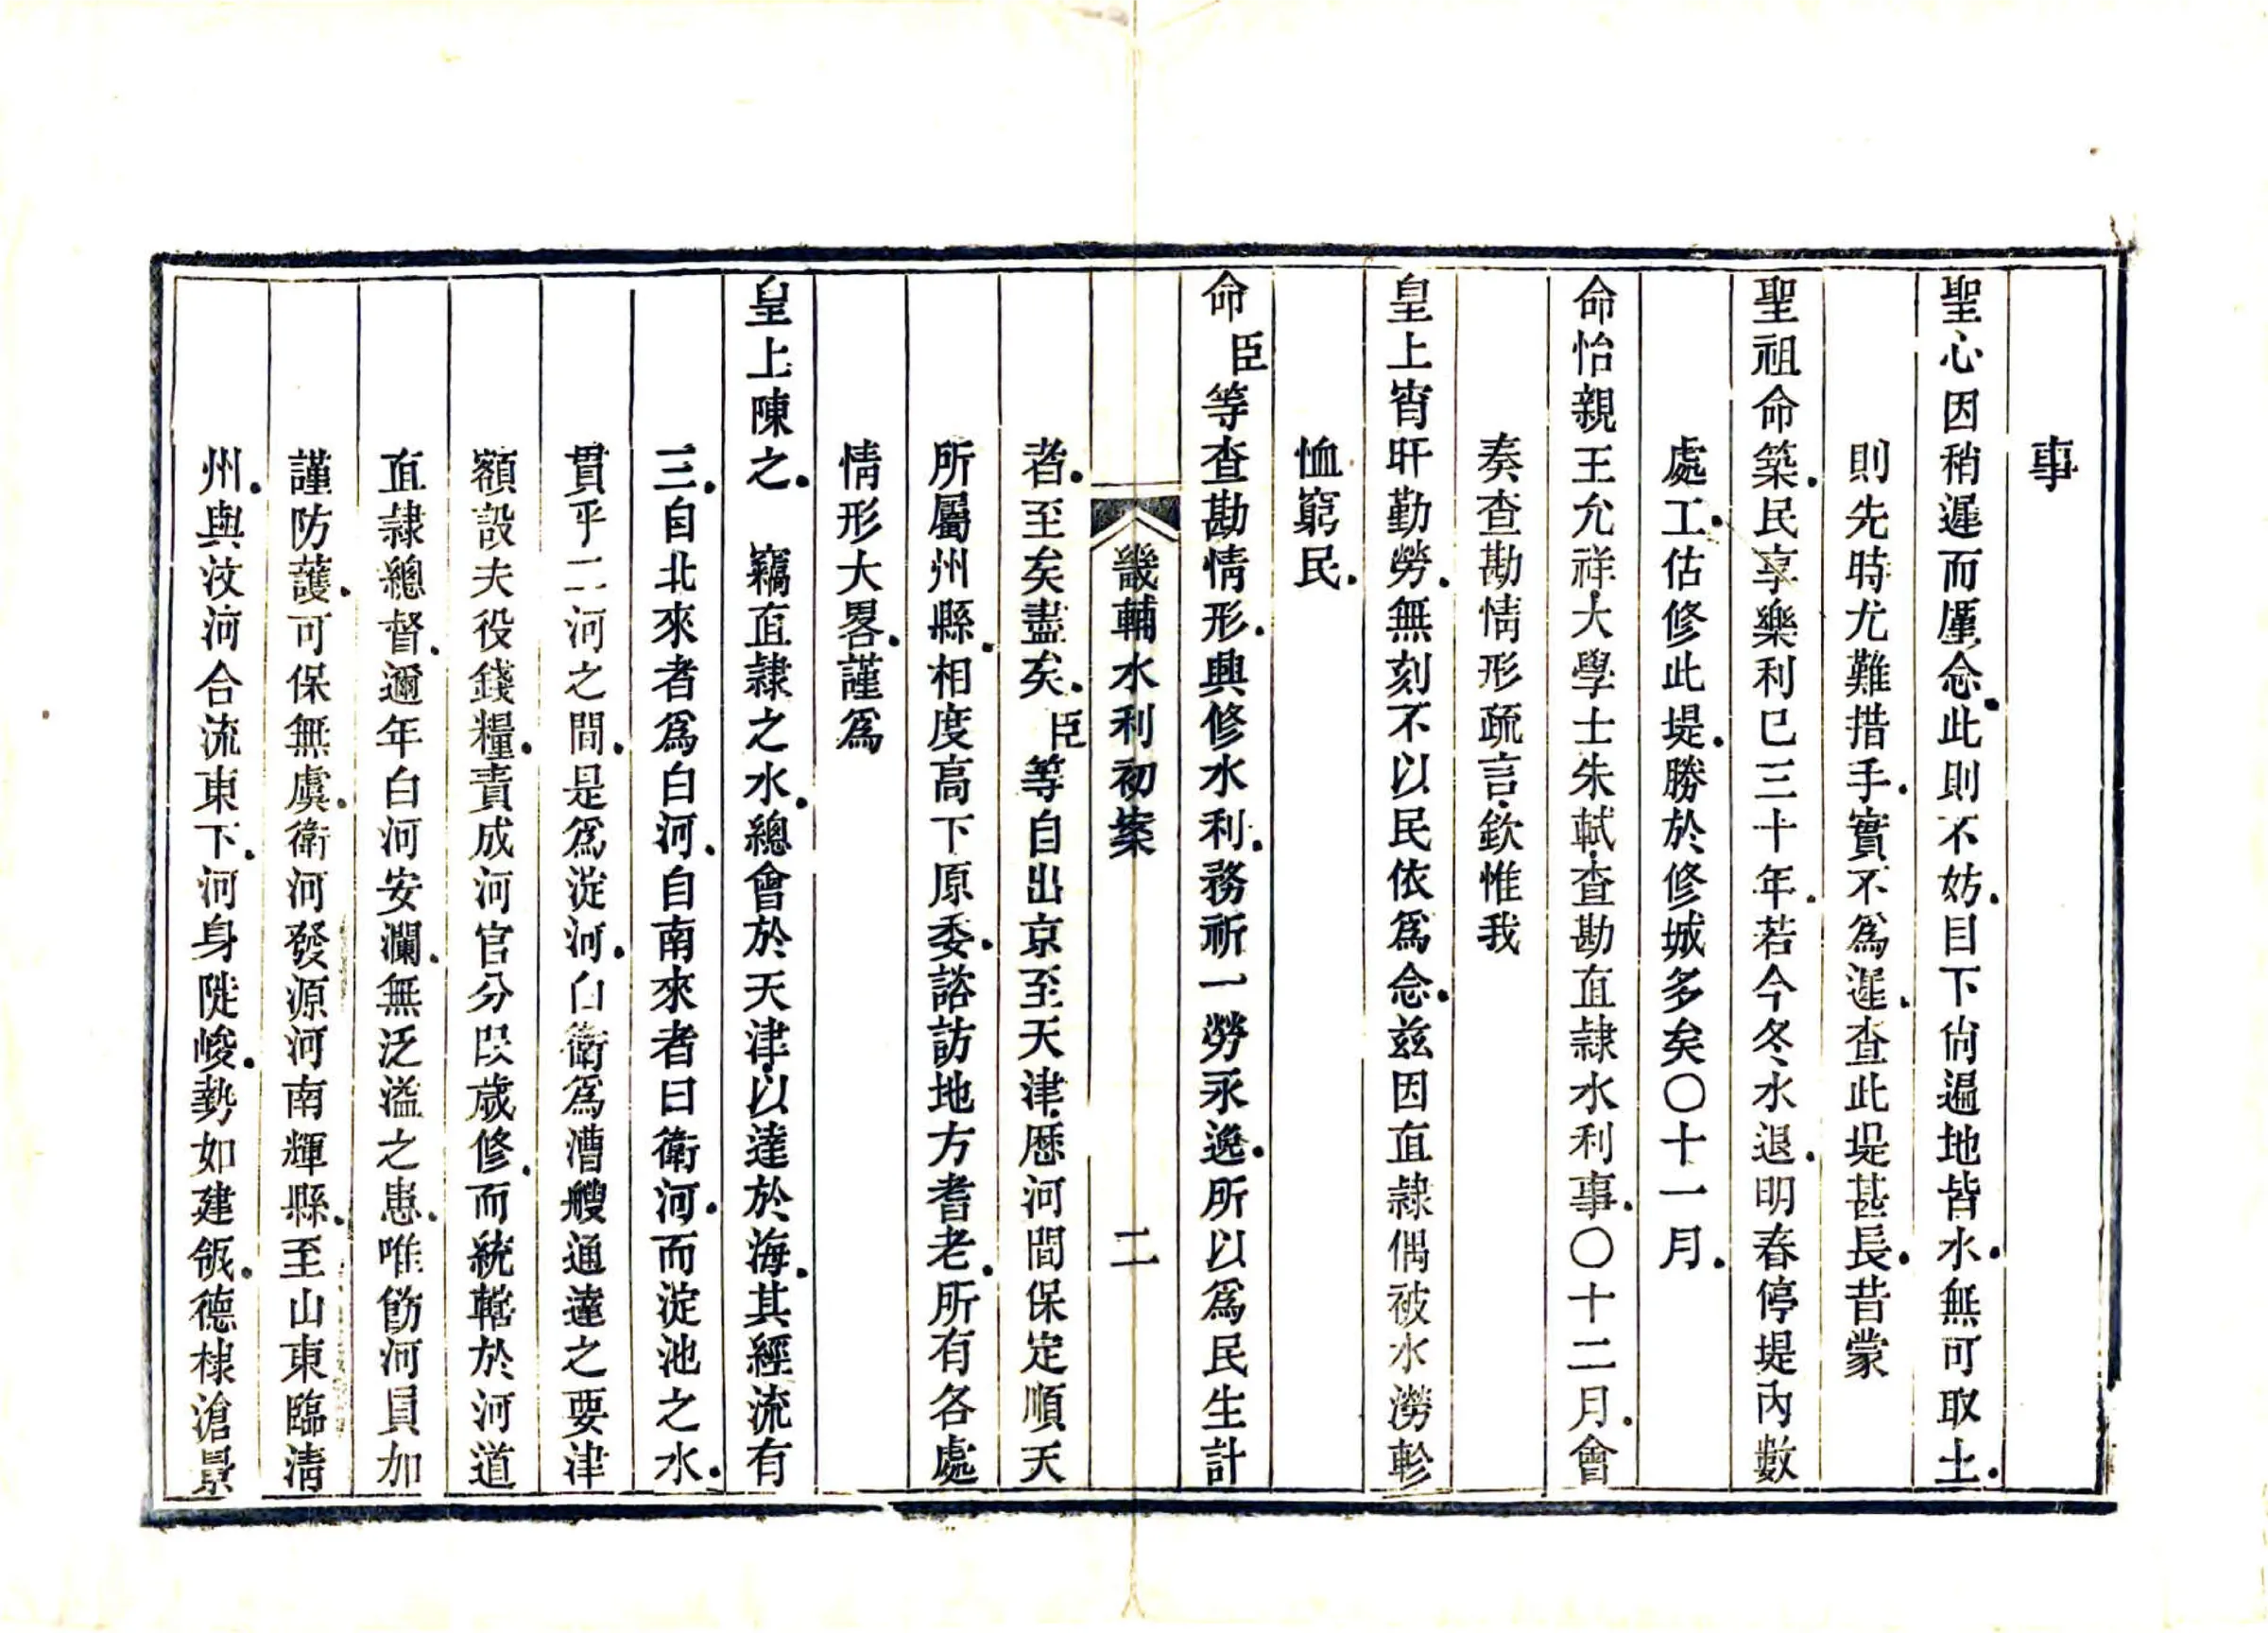 事
聖心因稍遲而廑念此則不妨目下尙遍地皆水無可取土
則先時尤難措手實不爲遲查此堤甚長昔蒙
聖祖命築民享樂利已三十年若今冬水退明春停堤內數
處工估修此堤勝於修城多矣〇十一月
命怡親王允祥大學士朱軾查勘直隷水利事〇十二月會
奏查勘情形疏言欽惟我
皇上宵旰勤勞無刻不以民依爲念兹因直隷偶被水澇軫
恤窮民
命臣等查勘情形興修水利務祈一勞永逸所以爲民生計
畿輔水利初案 二
者至矣盡矣臣等自出京至天津歷河間保定順天
所屬州縣相度高下原委諮訪地方耆老所有各處
情形大畧謹爲
皇上陳之 竊直隷之水總會於天津以達於海其經流有
三自北來者爲白河自南來者曰衛河而淀池之水
貫乎二河之間是爲淀河白衛爲漕艘通達之要津
額設夫役錢糧責成河官分段歲修而統轄於河道
直隷總督邇年白河安瀾無泛溢之患唯飭河員加
謹防護可保無虞衛河發源河南輝縣至山東臨淸
州與汶河合流東下河身陡峻勢如建瓴德棣滄景